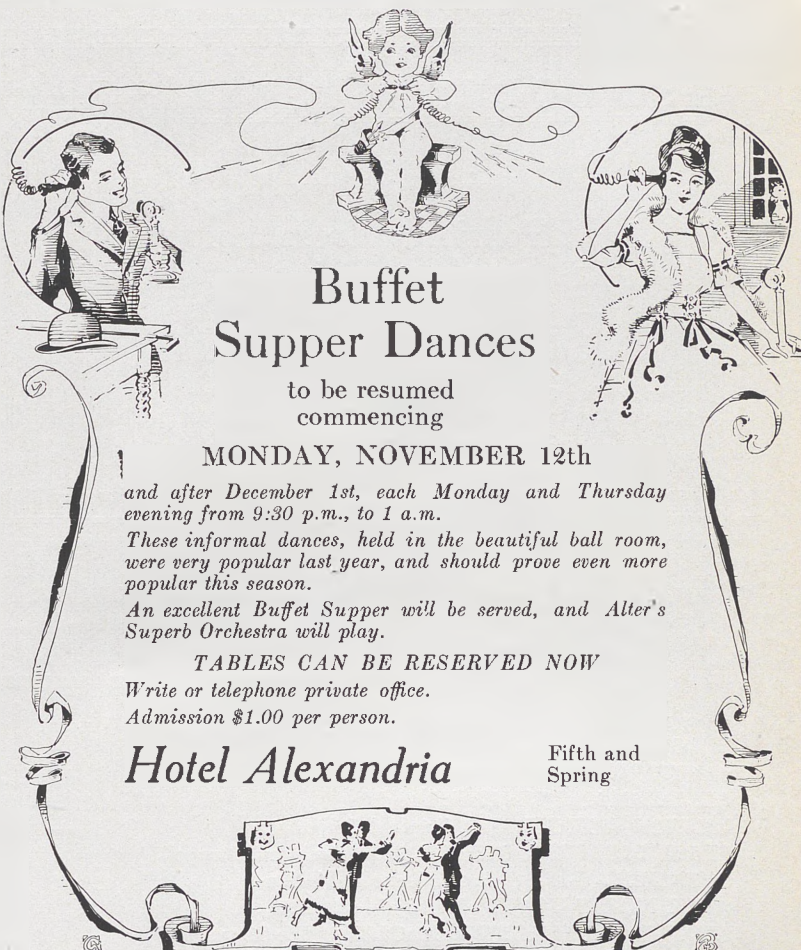 Buffet
Supper Dances
to be resumed
commencing
MONDAY, NOVEMBER 12th
and after December 1st, each Monday and Thursday
evening from 9:30 p.m., to 1 a.m.
These informal dances, held in the beautiful ball room,
were very popular last year, and should prove even more
popular this season.
An excellent Buffet Supper will be served, and Alter's
Superb Orchestra will play.
TABLES CAN BE RESERVED NOW
Write or telephone private office.
Admission $1.00 per person.
Hotel Alexandria
Fifth and
Spring